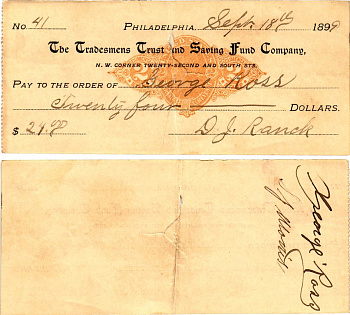 No. 41 Philadelphia, Sept. 18th 1899
The Tradesmens Trust and Saving Fund Company,
N. W. CORNER TWENTY-SECOND AND SOUTH STS.
PAY TO THE ORDER OF George Ross
Twenty four DOLLARS.
$ 24.00 D. J. Ranck
George Ross